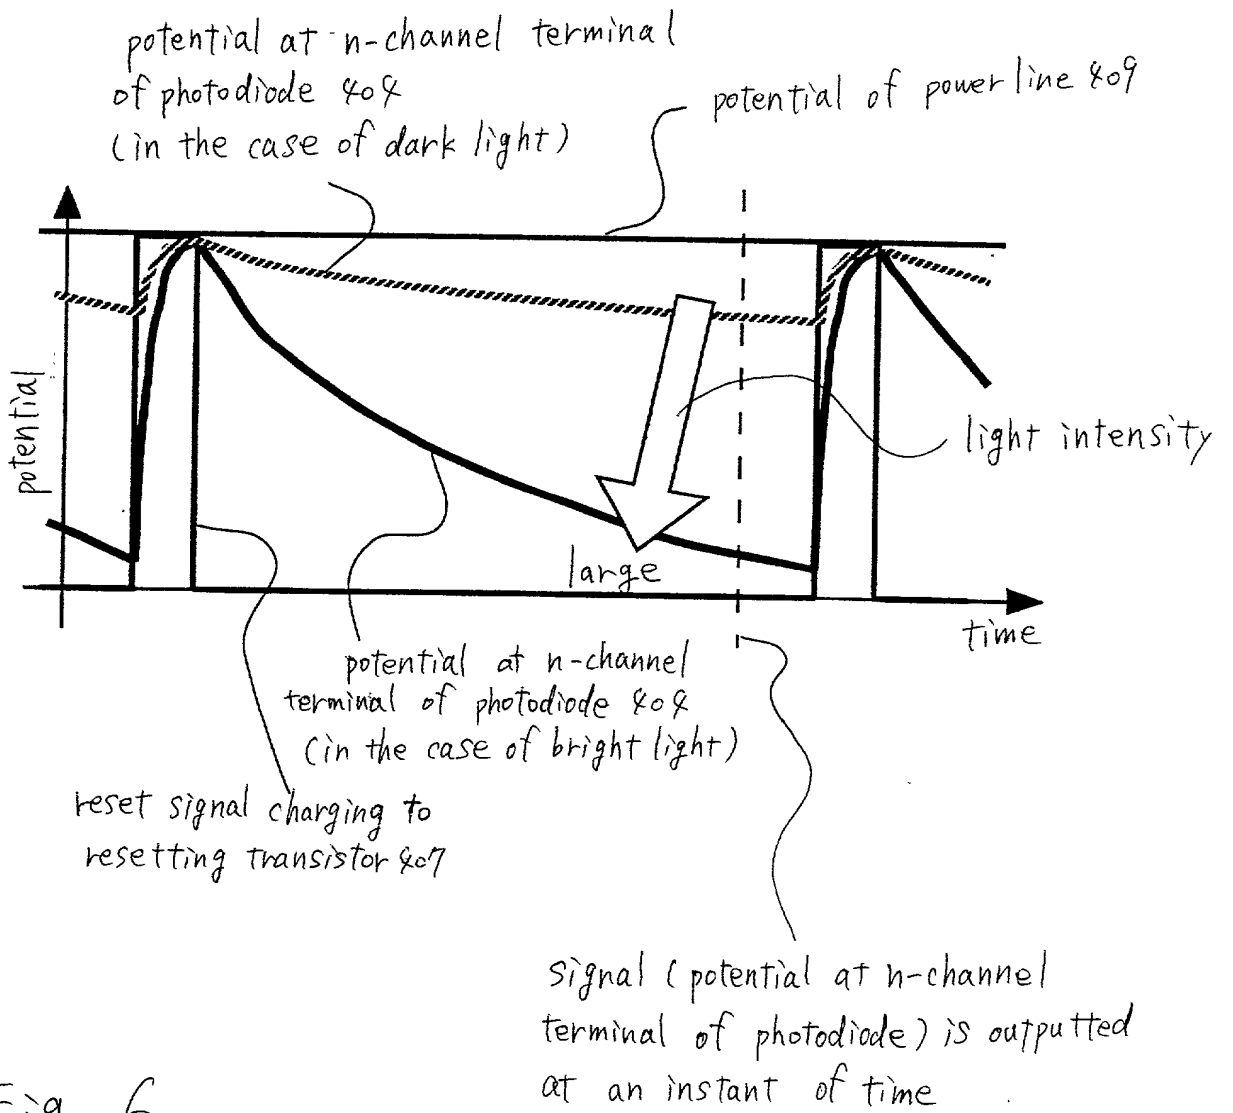 potential at n-channel terminal
of photodiode 404
(in the case of dark light)
potential of power line 409
potential
light intensity
large
time
potential at n-channel
terminal of photodiode 404
(in the case of bright light)
reset signal charging to
resetting transistor 407
signal (potential at n-channel
terminal of photodiode) is outputted
at an instant of time
Fig. 6